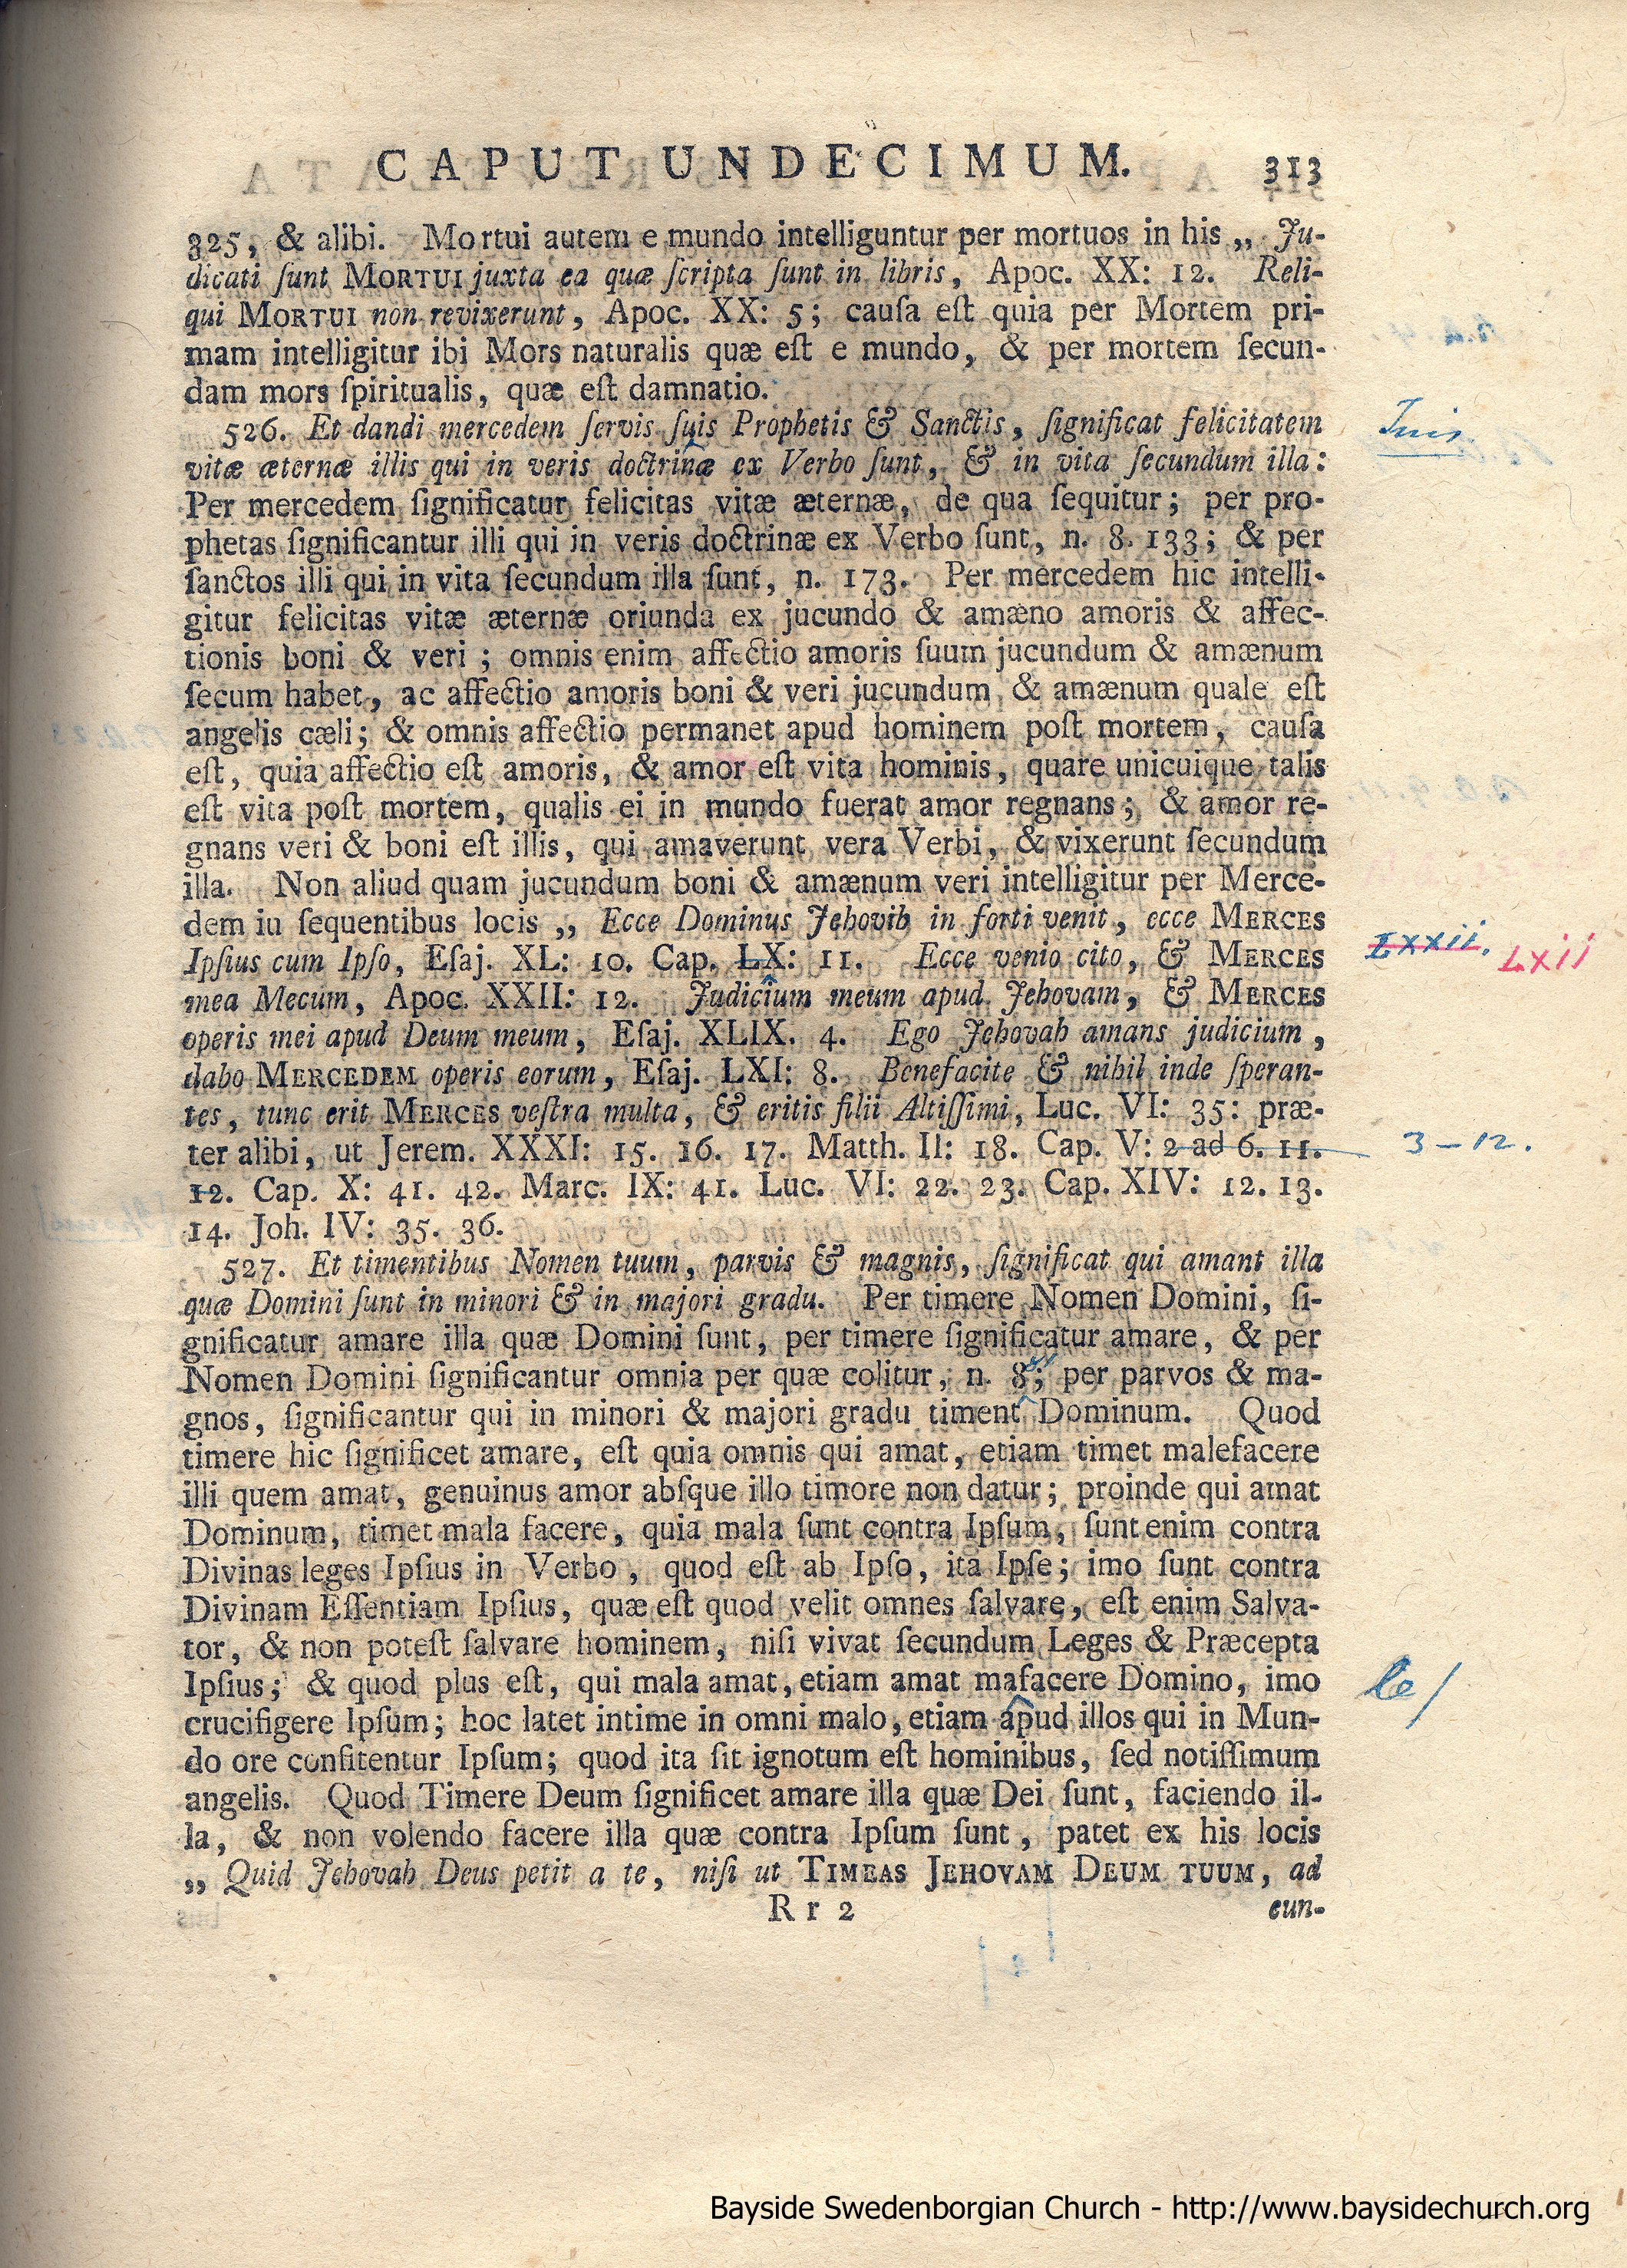 CAPUT UNDECIMUM. 313
325, & alibi. Mortui autem e mundo intelliguntur per mortuos in his „ Ju-
dicati ſunt MORTUI juxta ea quæ ſcripta ſunt in libris, Apoc. XX: 12. Reli-
qui MORTUI non revixerunt, Apoc. XX: 5; cauſa eſt quia per Mortem pri-
mam intelligitur ibi Mors naturalis quæ eſt e mundo, & per mortem ſecun-
dam mors ſpiritualis, quæ eſt damnatio.
526. Et dandi mercedem ſervis ſuis Prophetis & Sanctis, ſignificat felicitatem
vitæ æternæ illis qui in veris doctrinæ ex Verbo ſunt, & in vita ſecundum illa:
Per mercedem ſignificatur felicitas vitæ æternæ, de qua ſequitur; per pro-
phetas ſignificantur illi qui in veris doctrinæ ex Verbo ſunt, n. 8. 133; & per
ſanctos illi qui in vita ſecundum illa ſunt, n. 173. Per mercedem hic intelli-
gitur felicitas vitæ æternæ oriunda ex jucundo & amæno amoris & affec-
tionis boni & veri; omnis enim affectio amoris ſuum jucundum & amænum
ſecum habet, ac affectio amoris boni & veri jucundum & amænum quale eſt
angelis cæli; & omnis affectio permanet apud hominem poſt mortem, cauſa
eſt, quia affectio eſt amoris, & amor eſt vita hominis, quare unicuique talis
eſt vita poſt mortem, qualis ei in mundo fuerat amor regnans; & amor re-
gnans veri & boni eſt illis, qui amaverunt vera Verbi, & vixerunt ſecundum
illa. Non aliud quam jucundum boni & amænum veri intelligitur per Merce-
dem iu ſequentibus locis „ Ecce Dominus Jehovih in forti venit, ecce MERCES
Ipſius cum Ipſo, Eſaj. XL: 10. Cap. LX: 11. Ecce venio cito, & MERCES
LXXII. LXII
mea Mecum, Apoc. XXII: 12. Judicium meum apud Jehovam, & MERCES
operis mei apud Deum meum, Eſaj. XLIX. 4. Ego Jehovah amans judicium,
dabo MERCEDEM operis eorum, Eſaj. LXI: 8. Benefacite & nihil inde ſperan-
tes, tunc erit MERCES veſtra multa, & eritis filii Altiſſimi, Luc. VI: 35: præ-
ter alibi, ut Jerem. XXXI: 15. 16. 17. Matth. II: 18. Cap. V: 2 ad 6. 11.
3 – 12.
12. Cap. X: 41. 42. Marc. IX: 41. Luc. VI: 22. 23. Cap. XIV: 12. 13.
14. Joh. IV: 35. 36.
527. Et timentibus Nomen tuum, parvis & magnis, ſignificat qui amant illa
quæ Domini ſunt in minori & in majori gradu. Per timere Nomen Domini, ſi-
gnificatur amare illa quæ Domini ſunt, per timere ſignificatur amare, & per
Nomen Domini ſignificantur omnia per quæ colitur, n. 8; per parvos & ma-
gnos, ſignificantur qui in minori & majori gradu timent Dominum. Quod
timere hic ſignificet amare, eſt quia omnis qui amat, etiam timet malefacere
illi quem amat, genuinus amor abſque illo timore non datur; proinde qui amat
Dominum, timet mala facere, quia mala ſunt contra Ipſum, ſunt enim contra
Divinas leges Ipſius in Verbo, quod eſt ab Ipſo, ita Ipſe; imo ſunt contra
Divinam Eſſentiam Ipſius, quæ eſt quod velit omnes ſalvare, eſt enim Salva-
tor, & non poteſt ſalvare hominem, niſi vivat ſecundum Leges & Præcepta
Ipſius; & quod plus eſt, qui mala amat, etiam amat mafacere Domino, imo
le/
crucifigere Ipſum; hoc latet intime in omni malo, etiam apud illos qui in Mun-
do ore confitentur Ipſum; quod ita ſit ignotum eſt hominibus, ſed notiſſimum
angelis. Quod Timere Deum ſignificet amare illa quæ Dei ſunt, faciendo il-
la, & non volendo facere illa quæ contra Ipſum ſunt, patet ex his locis
„ Quid Jehovah Deus petit a te, niſi ut TIMEAS JEHOVAM DEUM TUUM, ad
Rr 2 cun-
Bayside Swedenborgian Church - http://www.baysidechurch.org